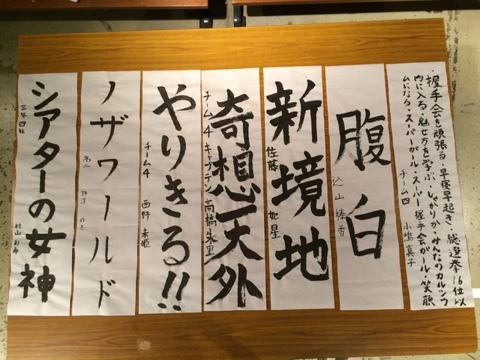 ・握手会を頑張る・早寝早起き・総選挙16位以
内に入る・魅せ方を学ぶ・しっかりか・みんなのカルシウ
ムになる・スーパーガール・スーパー握手会ガール・笑顔
チーム四 小嶋真子
腹白
込山榛香
新境地
佐藤 妃星
奇想天外
チーム4キャプテン 高橋朱里
やりきる!!
チーム4 西野 未姫
ノザワールド
野澤
シアターの女神
村山 彩希